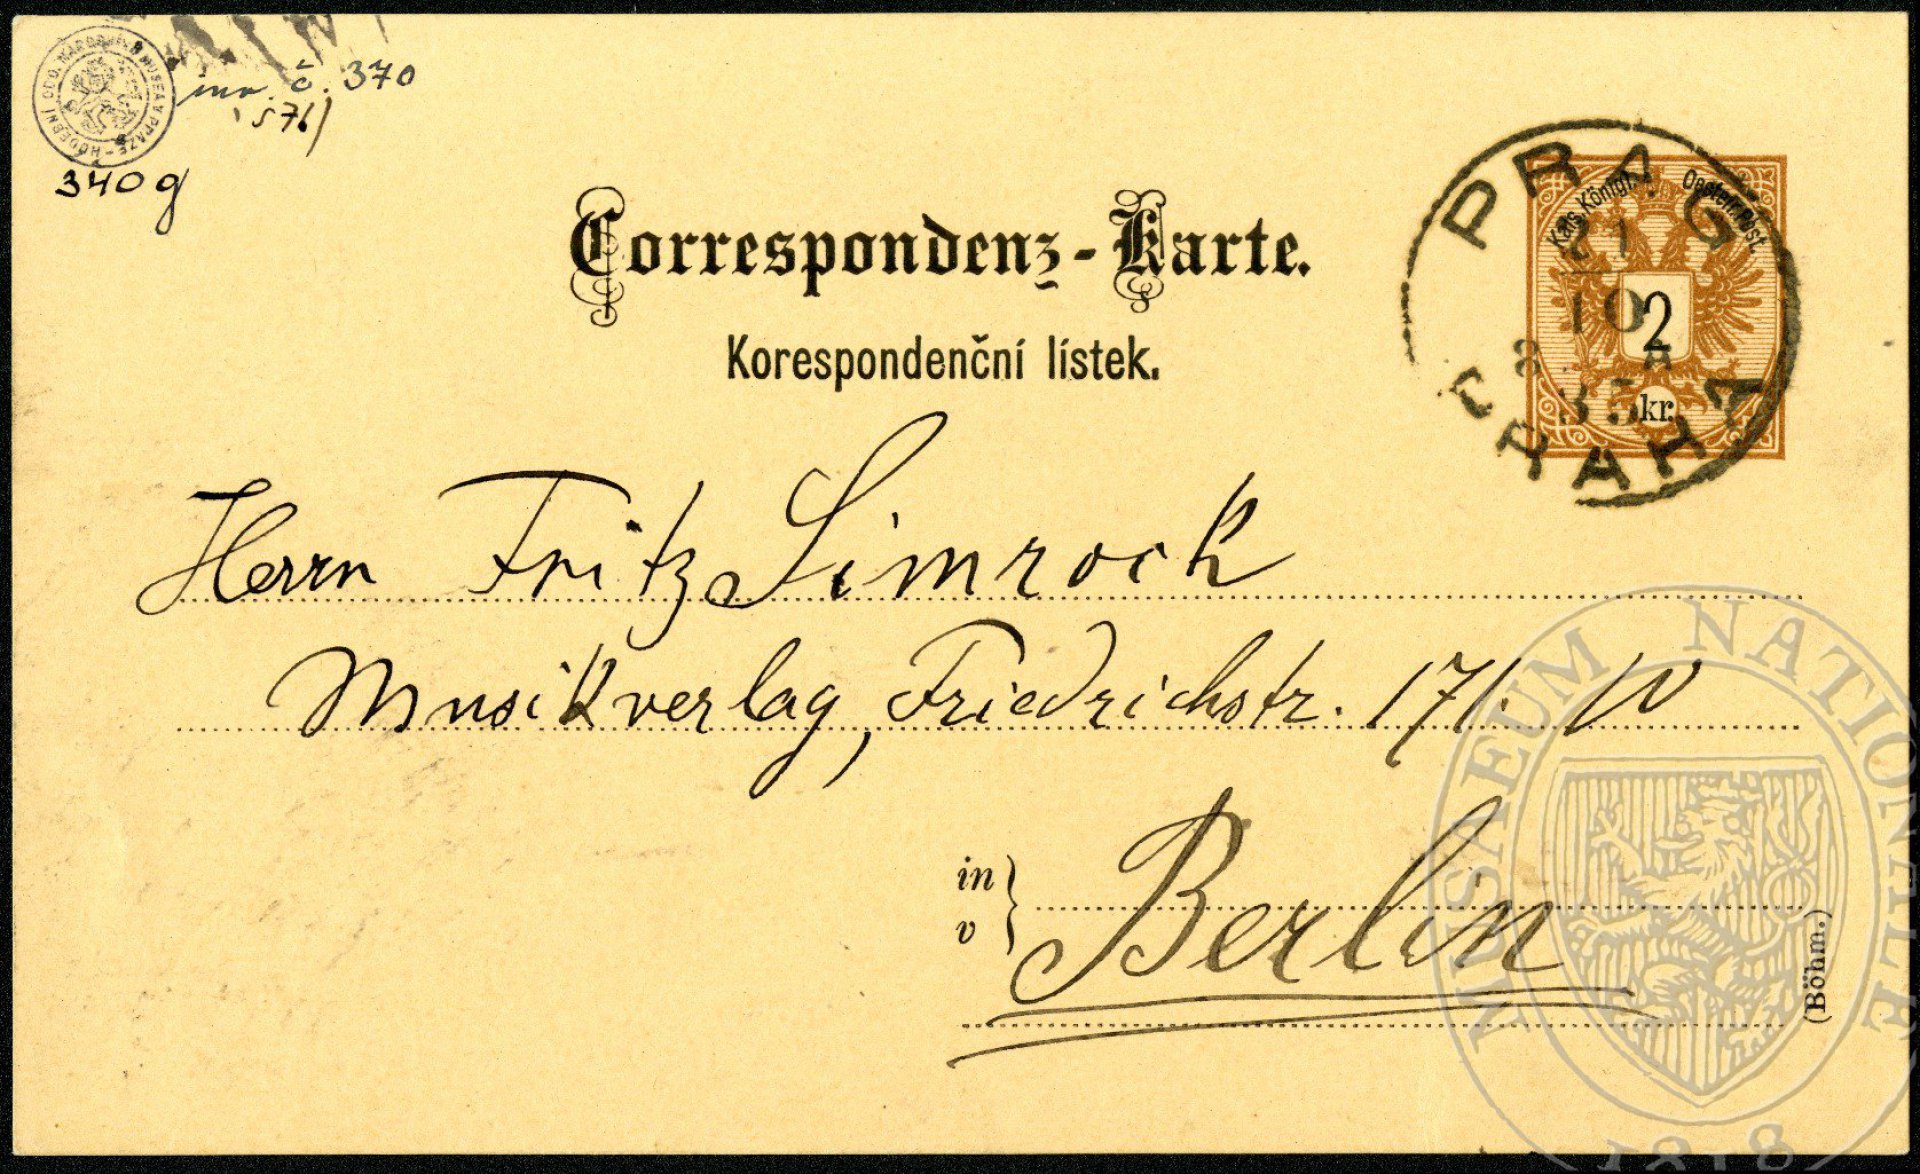 HUDEBNÍ ODD. NÁRODNÍHO MUSEA V PRAZE
inv. č. 370
576)
340 g
Correspondenz-Karte.
Korespondenční lístek.
Kais. Königl. Oesterr. Post.
2
kr.
PRAG
21
10
8 A
85
PRAHA
Herrn Fritz Simrock
Musikverlag, Friedrichstr. 171. W
in
v
Berlin
(Böhm.)
MUSAEUM NATIONALE
1818